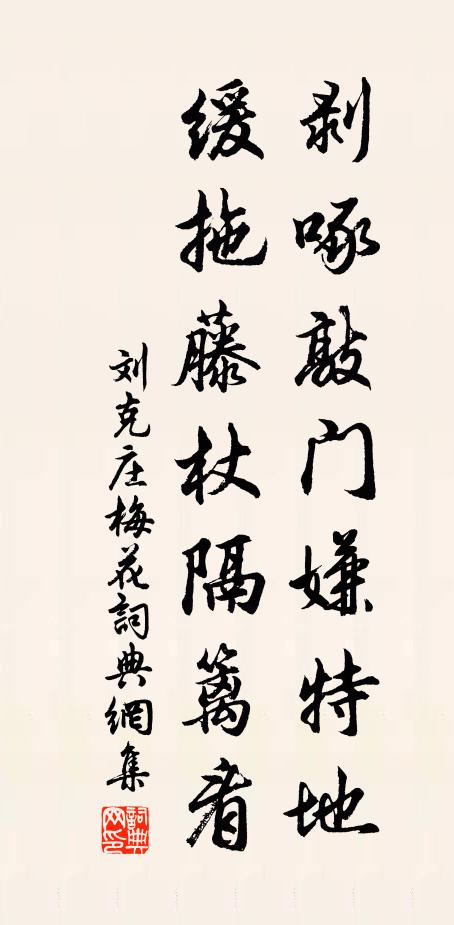 剥啄敲门嫌特地
缓拖藤杖隔篱看
刘克庄梅花詞典網集
詞典网印